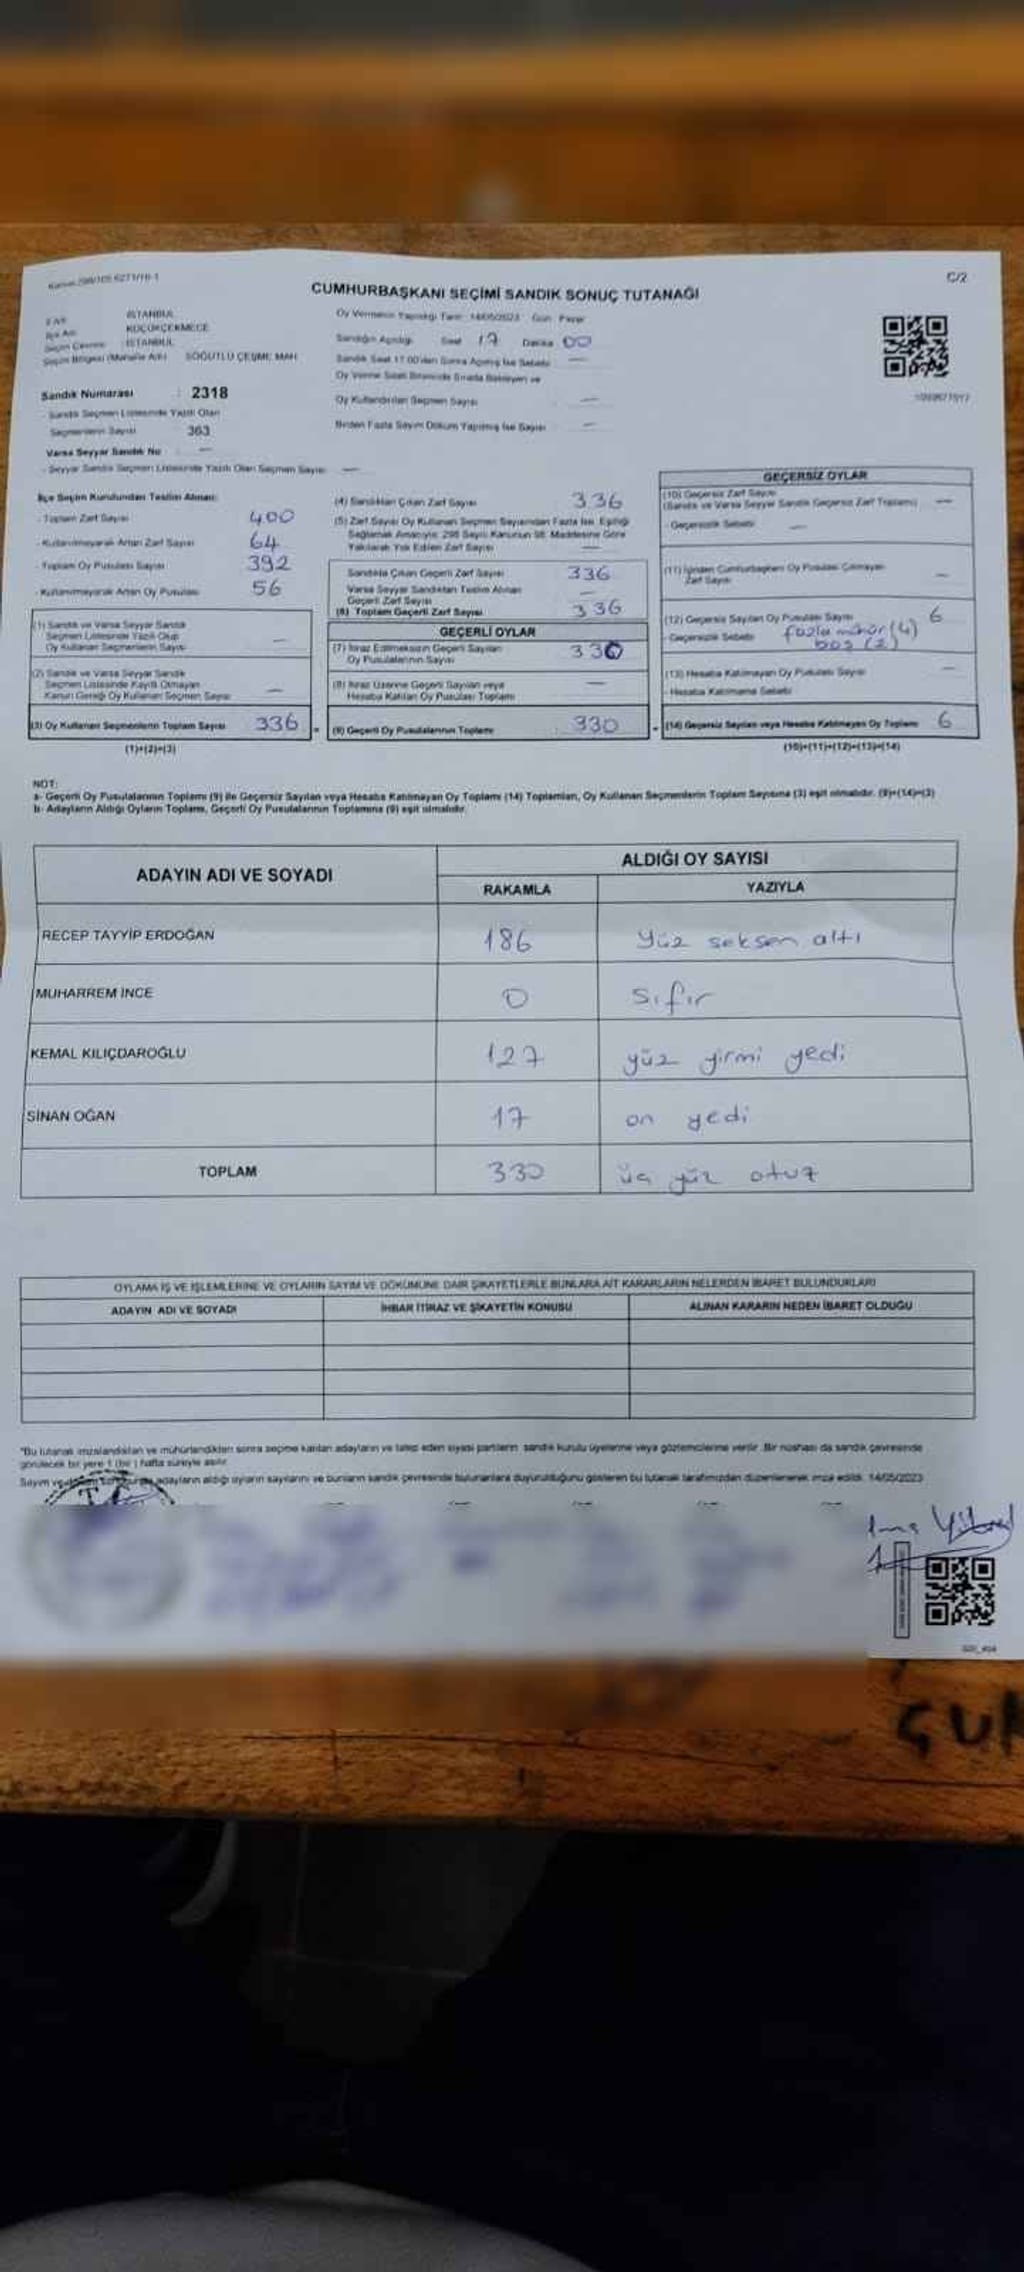 Kanun 298/105 6271/16-1
C/2
CUMHURBAŞKANI SEÇİMİ SANDIK SONUÇ TUTANAĞI
İl Adı : İSTANBUL
İlçe Adı : KÜÇÜKÇEKMECE
Seçim Çevresi : İSTANBUL
Seçim Bölgesi (Mahalle Adı) SÖĞÜTLÜ ÇEŞME MAH.
Sandık Numarası : 2318
- Sandık Seçmen Listesinde Yazılı Olan
Seçmenlerin Sayısı 363
Varsa Seyyar Sandık No : —
- Seyyar Sandık Seçmen Listesinde Yazılı Olan Seçmen Sayısı —
Oy Vermenin Yapıldığı Tarih : 14/05/2023 Gün : Pazar
Sandığın Açıldığı Saat 17 Dakika 00
Sandık Saat 17.00'den Sonra Açılmış İse Sebebi —
Oy Verme Saati Bitiminde Sırada Bekleyen ve
Oy Kullandırılan Seçmen Sayısı —
Birden Fazla Sayım Döküm Yapılmış İse Sayısı —
İlçe Seçim Kurulundan Teslim Alınan:
- Toplam Zarf Sayısı 400
- Kullanılmayarak Artan Zarf Sayısı 64
- Toplam Oy Pusulası Sayısı 392
- Kullanılmayarak Artan Oy Pusulası 56
(1) Sandık ve Varsa Seyyar Sandık
Seçmen Listesinde Yazılı Olup
Oy Kullanan Seçmenlerin Sayısı —
(2) Sandık ve Varsa Seyyar Sandık
Seçmen Listesinde Kayıtlı Olmayan
Kanun Gereği Oy Kullanan Seçmen Sayısı —
(3) Oy Kullanan Seçmenlerin Toplam Sayısı 336
(1)+(2)=(3)
(4) Sandıktan Çıkan Zarf Sayısı 336
(5) Zarf Sayısı Oy Kullanan Seçmen Sayısından Fazla İse, Eşitliği
Sağlamak Amacıyla; 298 Sayılı Kanunun 98. Maddesine Göre
Yakılarak Yok Edilen Zarf Sayısı —
Sandıkta Çıkan Geçerli Zarf Sayısı 336
Varsa Seyyar Sandıktan Teslim Alınan
Geçerli Zarf Sayısı —
(6) Toplam Geçerli Zarf Sayısı 336
GEÇERLİ OYLAR
(7) İtiraz Edilmeksizin Geçerli Sayılan
Oy Pusulalarının Sayısı 330
(8) İtiraz Üzerine Geçerli Sayılan veya
Hesaba Katılan Oy Pusulası Toplamı —
(9) Geçerli Oy Pusulalarının Toplamı : 330
GEÇERSİZ OYLAR
(10) Geçersiz Zarf Sayısı
(Sandık ve Varsa Seyyar Sandık Geçersiz Zarf Toplamı) —
- Geçersizlik Sebebi —
(11) İçinden Cumhurbaşkanı Oy Pusulası Çıkmayan
Zarf Sayısı —
(12) Geçersiz Sayılan Oy Pusulası Sayısı 6
- Geçersizlik Sebebi fazla mühür (4)
boş (2)
(13) Hesaba Katılmayan Oy Pusulası Sayısı —
- Hesaba Katılmama Sebebi
(14) Geçersiz Sayılan veya Hesaba Katılmayan Oy Toplamı 6
(10)+(11)+(12)+(13)=(14)
NOT:
a- Geçerli Oy Pusulalarının Toplamı (9) ile Geçersiz Sayılan veya Hesaba Katılmayan Oy Toplamı (14) Toplamları, Oy Kullanan Seçmenlerin Toplam Sayısına (3) eşit olmalıdır. (9)+(14)=(3)
b- Adayların Aldığı Oyların Toplamı, Geçerli Oy Pusulalarının Toplamına (9) eşit olmalıdır.
ADAYIN ADI VE SOYADI
ALDIĞI OY SAYISI
RAKAMLA YAZIYLA
RECEP TAYYİP ERDOĞAN 186 Yüz seksen altı
MUHARREM İNCE 0 Sıfır
KEMAL KILIÇDAROĞLU 127 yüz yirmi yedi
SİNAN OĞAN 17 on yedi
TOPLAM 330 üç yüz otuz
OYLAMA İŞ VE İŞLEMLERİNE VE OYLARIN SAYIM VE DÖKÜMÜNE DAİR ŞİKAYETLERLE BUNLARA AİT KARARLARIN NELERDEN İBARET BULUNDUKLARI
ADAYIN ADI VE SOYADI İHBAR İTİRAZ VE ŞİKAYETİN KONUSU ALINAN KARARIN NEDEN İBARET OLDUĞU
*Bu tutanak imzalandıktan ve mühürlendikten sonra seçime katılan adayların ve talep eden siyasi partilerin sandık kurulu üyelerine veya gözlemcilerine verilir. Bir nüshası da sandık çevresinde
görülecek bir yere 1 (bir) hafta süreyle asılır.
Sayım ve adayların aldığı oyların sayılarını ve bunların sandık çevresinde bulunanlara duyurulduğunu gösteren bu tutanak tarafımızdan düzenlenerek imza edildi. 14/05/2023